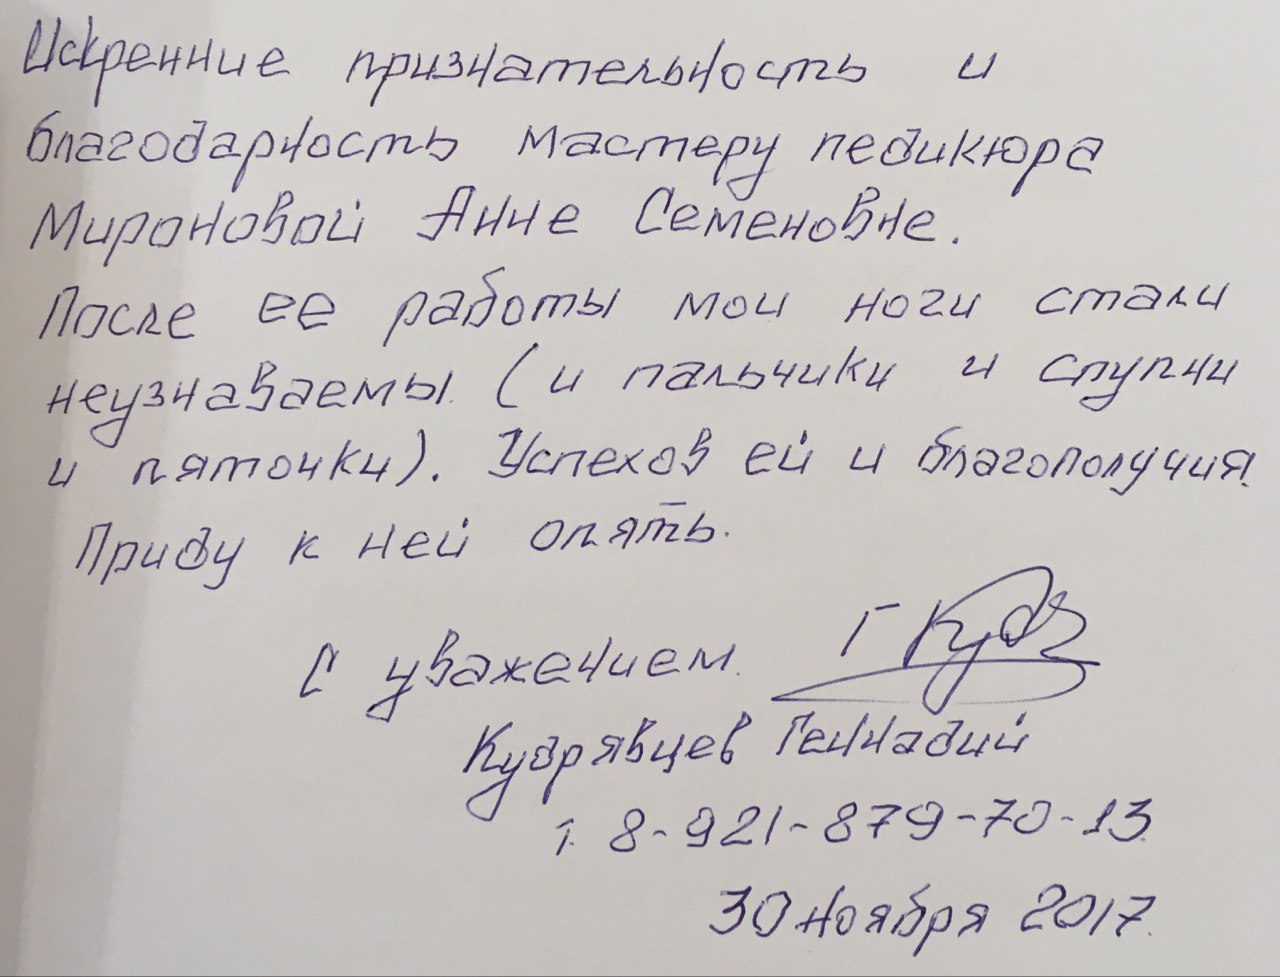 Искренние признательность и
благодарность мастеру педикюра
Мироновой Анне Семеновне.
После ее работы мои ноги стали
неузнаваемы (и пальчики и ступни
и пяточки). Успехов ей и благополучия.
Приду к ней опять.
С уважением. Г Кудр
Кудрявцев Геннадий
т. 8-921-879-70-13.
30 ноября 2017.